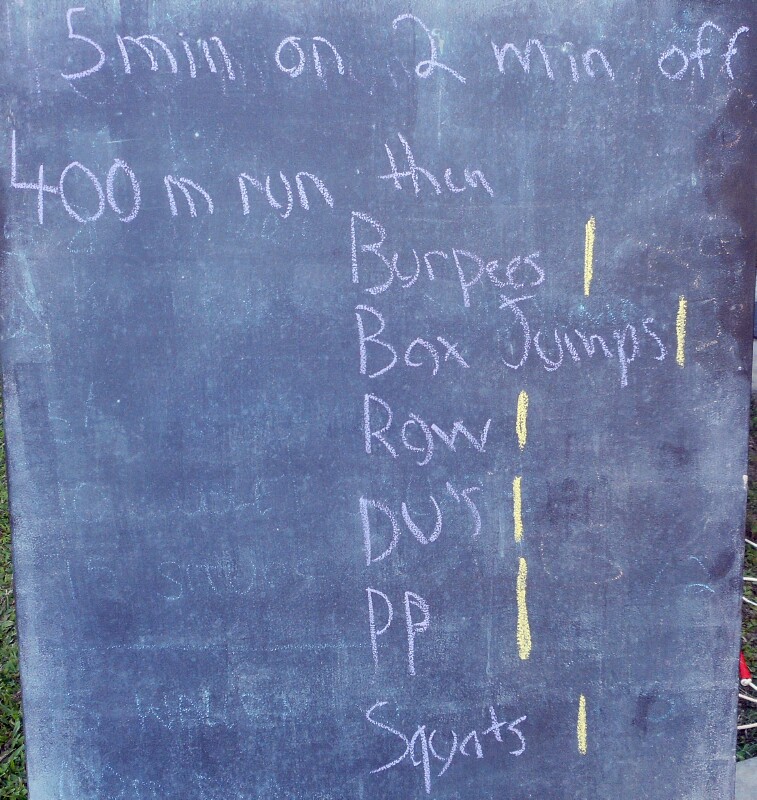 5min on 2 min off
400 m run then
Burpees |
Box Jumps |
Row |
DU's |
PP |
Squats |